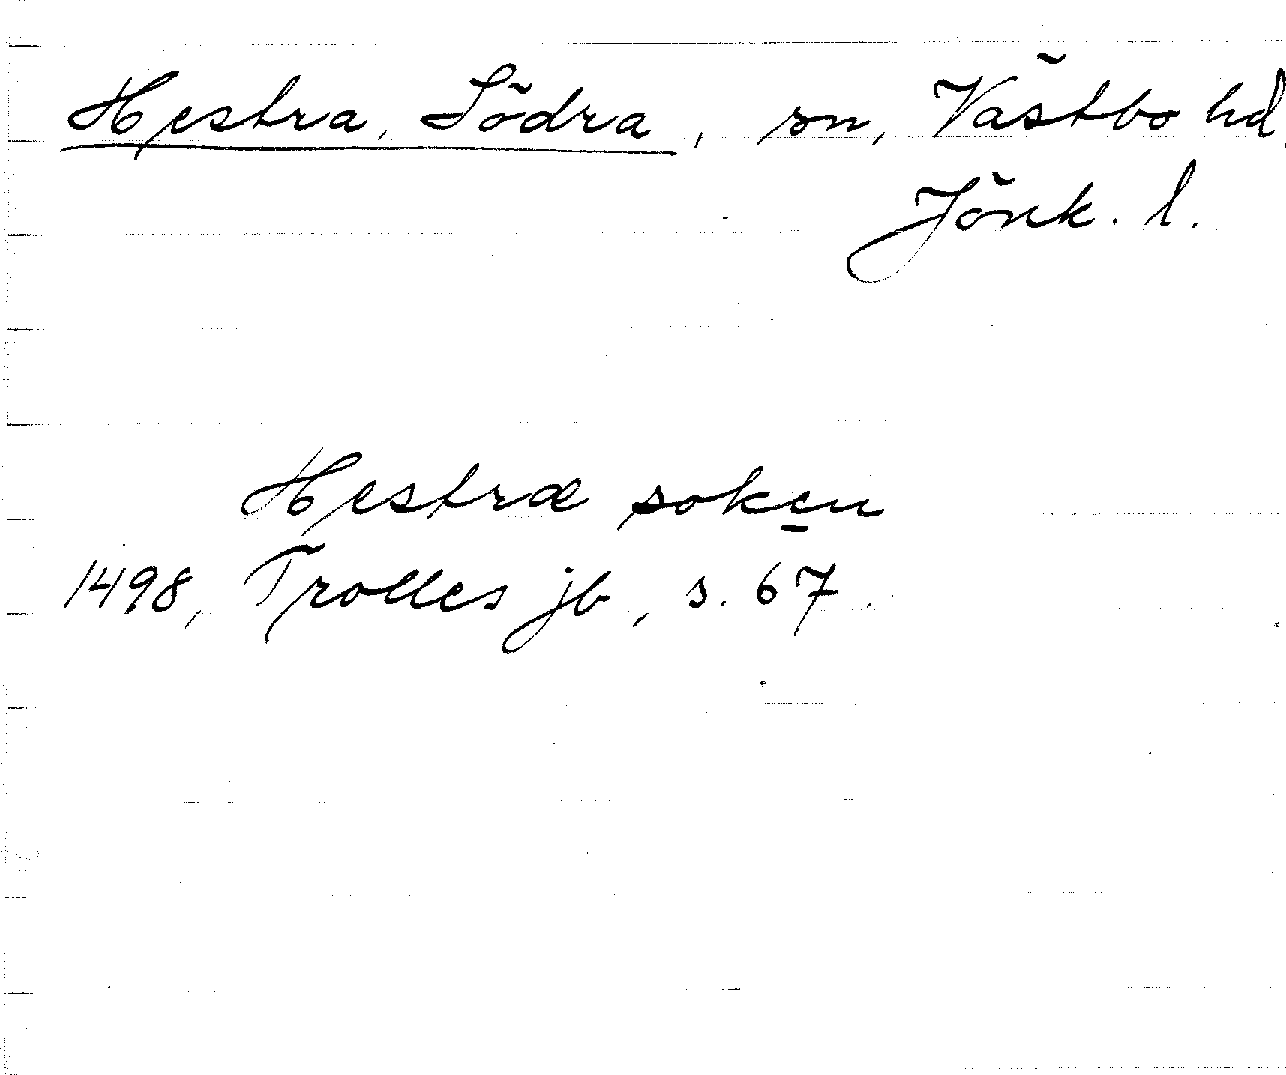 Hestra, Södra, sn, Västbo hd,
Jönk. l.
Hestræ soken
1498, Trolles jb, s. 67.